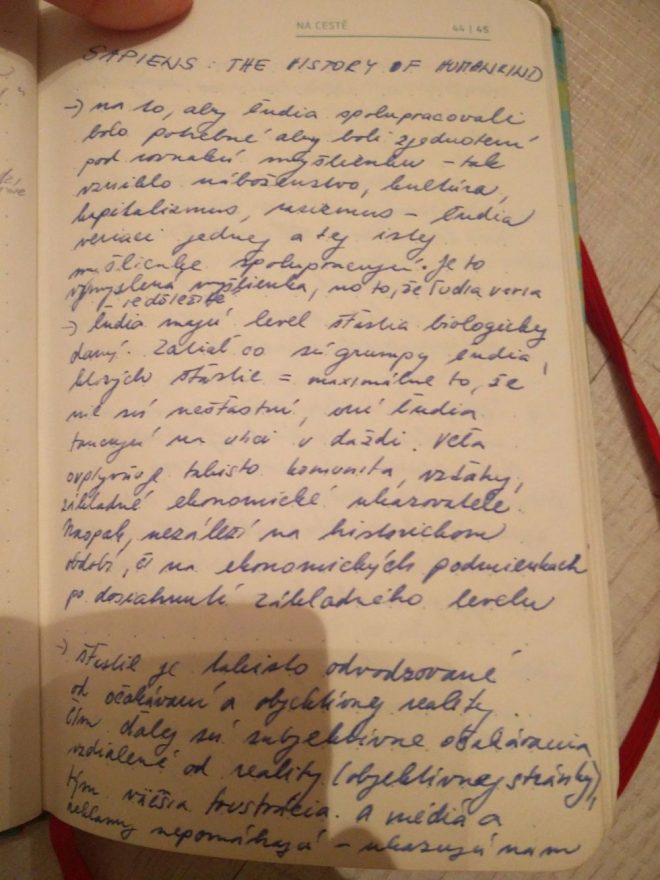 NA CESTĚ 44 | 45
SAPIENS: THE HISTORY OF HUMANKIND
-> na to, aby ľudia spolupracovali
bolo potrebné aby boli zjednotení
pod rovnakú myšlienku - tak
vzniklo náboženstvo, kultúra,
kapitalizmus, rasizmus - ľudia
veriaci jednej a tej istej
myšlienke spolupracujú. Je to
vymyslená myšlienka, no to, že ľudia veria
je dôležité
-> ľudia majú level šťastia biologicky
daný. Zatiaľ čo sú grumpy ľudia,
ktorých šťastie = maximálne to, že
nie sú nešťastní, iní ľudia
tancujú na ulici v daždi. Veľa
ovplyvňuje takisto komunita, vzťahy,
základné ekonomické ukazovatele.
Naopak, nezáleží na historickom
období, či na ekonomických podmienkach
po dosiahnutí základného levelu
-> šťastie je takisto odvodzované
od očakávaní a objektívnej reality.
Čím ďalej sú subjektívne očakávania
vzdialené od reality (objektívnej stránky),
tým väčšia frustrácia. A média a
reklamy nepomáhajú - ukazujú nám